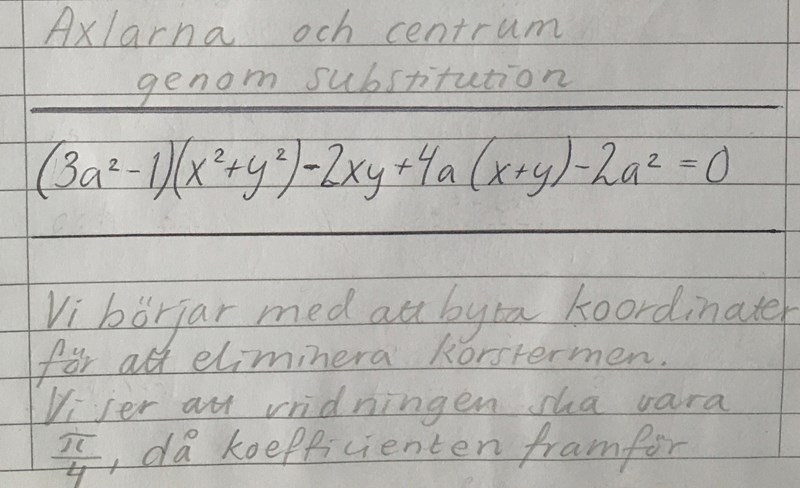 Axlarna och centrum
genom substitution
(3a²-1)(x²+y²)-2xy+4a(x+y)-2a² = 0
Vi börjar med att byta koordinater
för att eliminera korstermen.
Vi ser att vridningen ska vara
π/4, då koefficienten framför